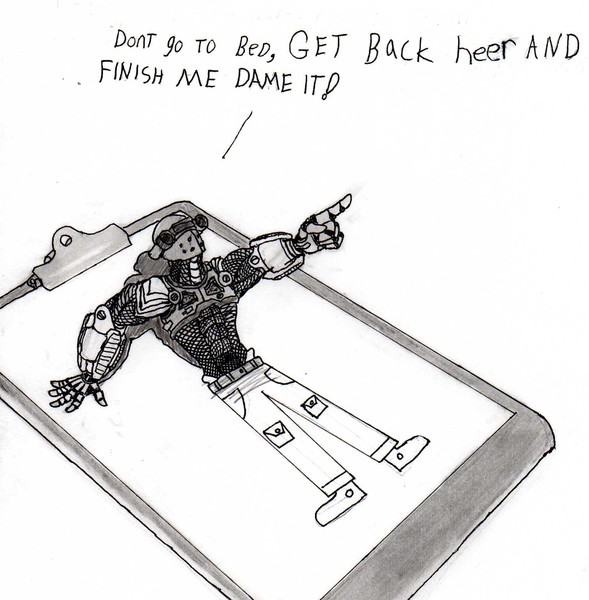 DonT go TO BeD, GET Back heer AND
FINISH ME DAME IT!